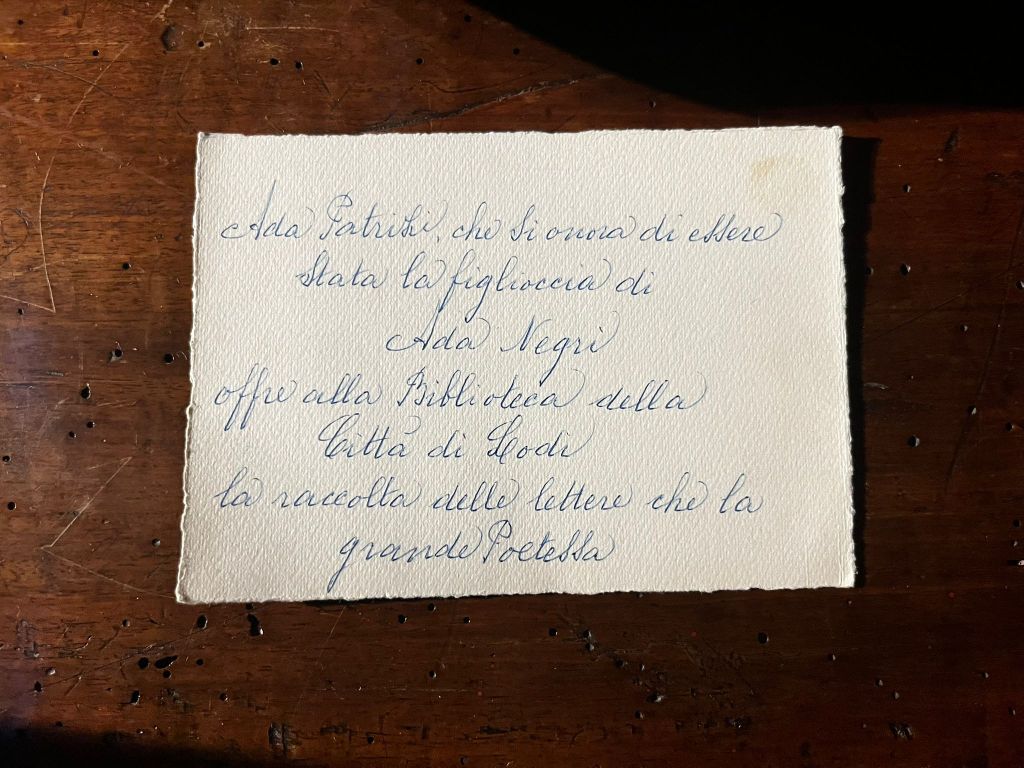 Ada Patrisi, che si onora di essere
stata la figlioccia di
Ada Negri
offre alla Biblioteca della
Città di Lodi
la raccolta delle lettere che la
grande Poetessa